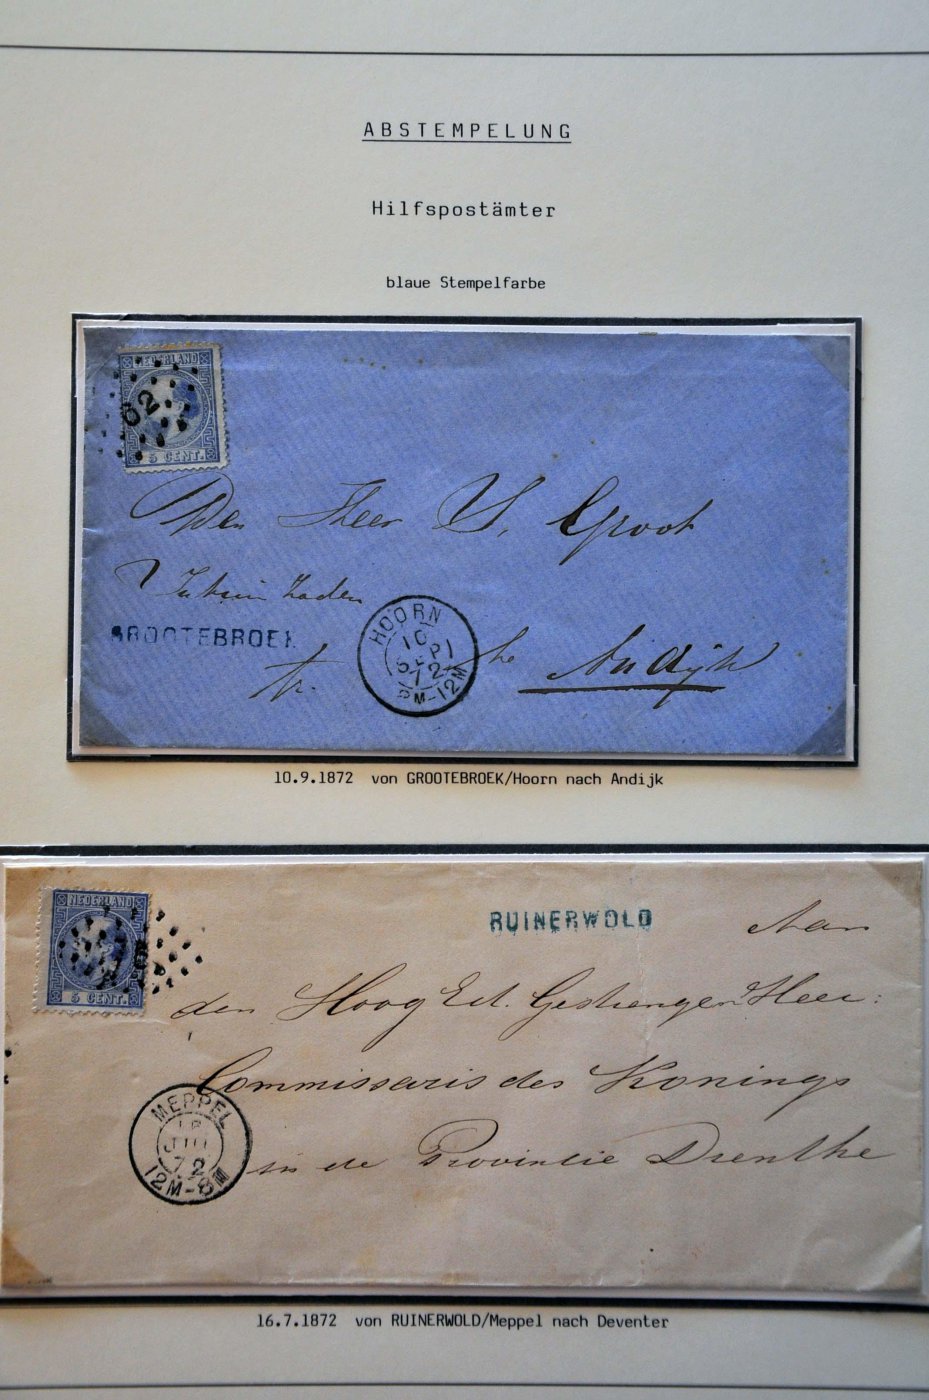 ABSTEMPELUNG
Hilfspostämter
blaue Stempelfarbe
NEDERLAND
62
5 CENT.
Den Heer S, Groot
in Zaden
GROOTEBROEK
HOORN
10
SEP
72
8M-12M
te Andijk
10.9.1872 von GROOTEBROEK/Hoorn nach Andijk
NEDERLAND
5 CENT.
RUINERWOLD
Aan
den Hoog Ed. Gestrengen Heer:
Commissaris des Konings
in de Provintie Drenthe
MEPPEL
72
12M-8M
16.7.1872 von RUINERWOLD/Meppel nach Deventer